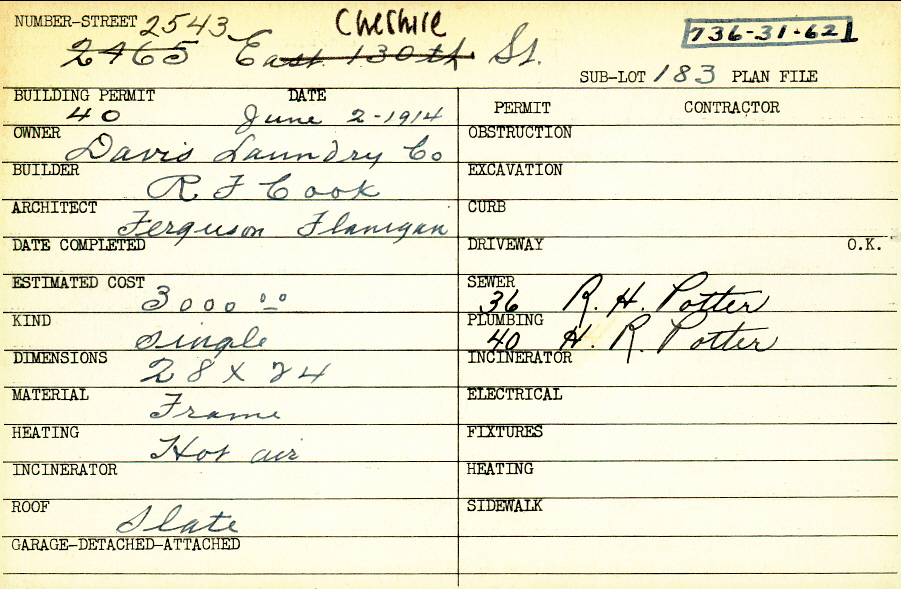 NUMBER-STREET 2543 Cheshire
2465 East 130th St. 736-31-62
SUB-LOT 183 PLAN FILE
BUILDING PERMIT DATE
40 June 2-1914
PERMIT CONTRACTOR
OWNER Davis Laundry Co
OBSTRUCTION
BUILDER R F Cook
EXCAVATION
ARCHITECT Ferguson Flanigan
CURB
DATE COMPLETED
DRIVEWAY O.K.
ESTIMATED COST 3000 00
SEWER 36 R. H. Potter
KIND Single
PLUMBING 40 H. R. Potter
DIMENSIONS 28 X 24
INCINERATOR
MATERIAL Frame
ELECTRICAL
HEATING Hot air
FIXTURES
INCINERATOR
HEATING
ROOF Slate
SIDEWALK
GARAGE-DETACHED-ATTACHED